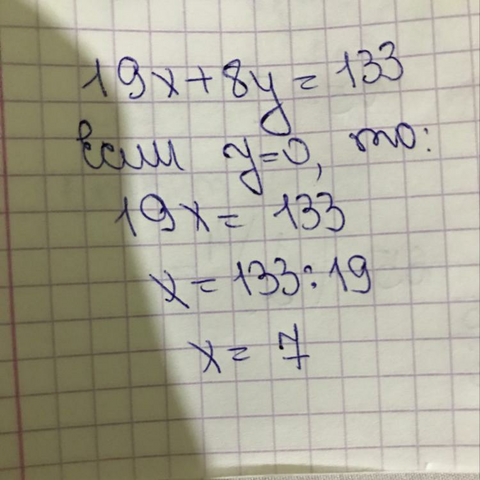 19x+8y=133
Если y=0, то:
19x=133
x=133:19
x=7